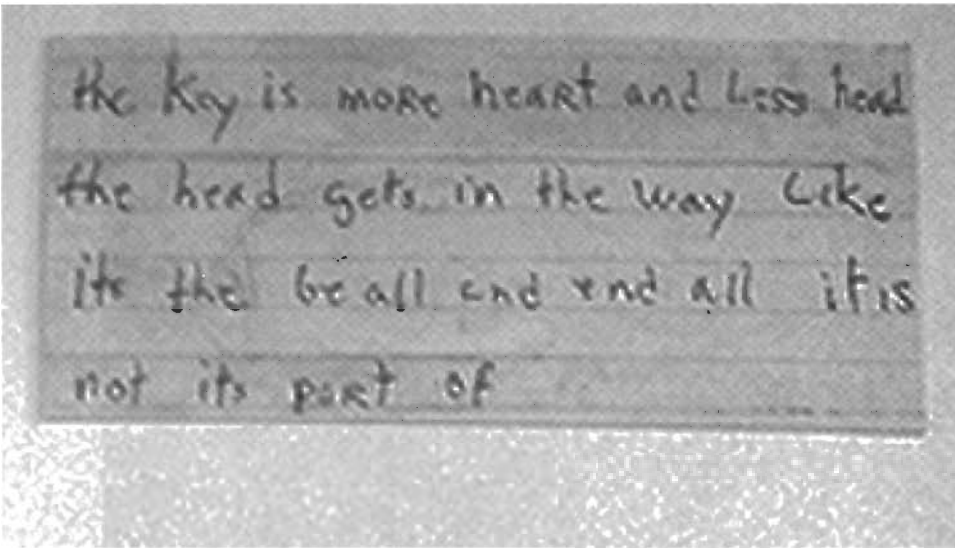 the Key is more heart and Less head
the head gets in the way Like
its the be all and end all it is
not its part of